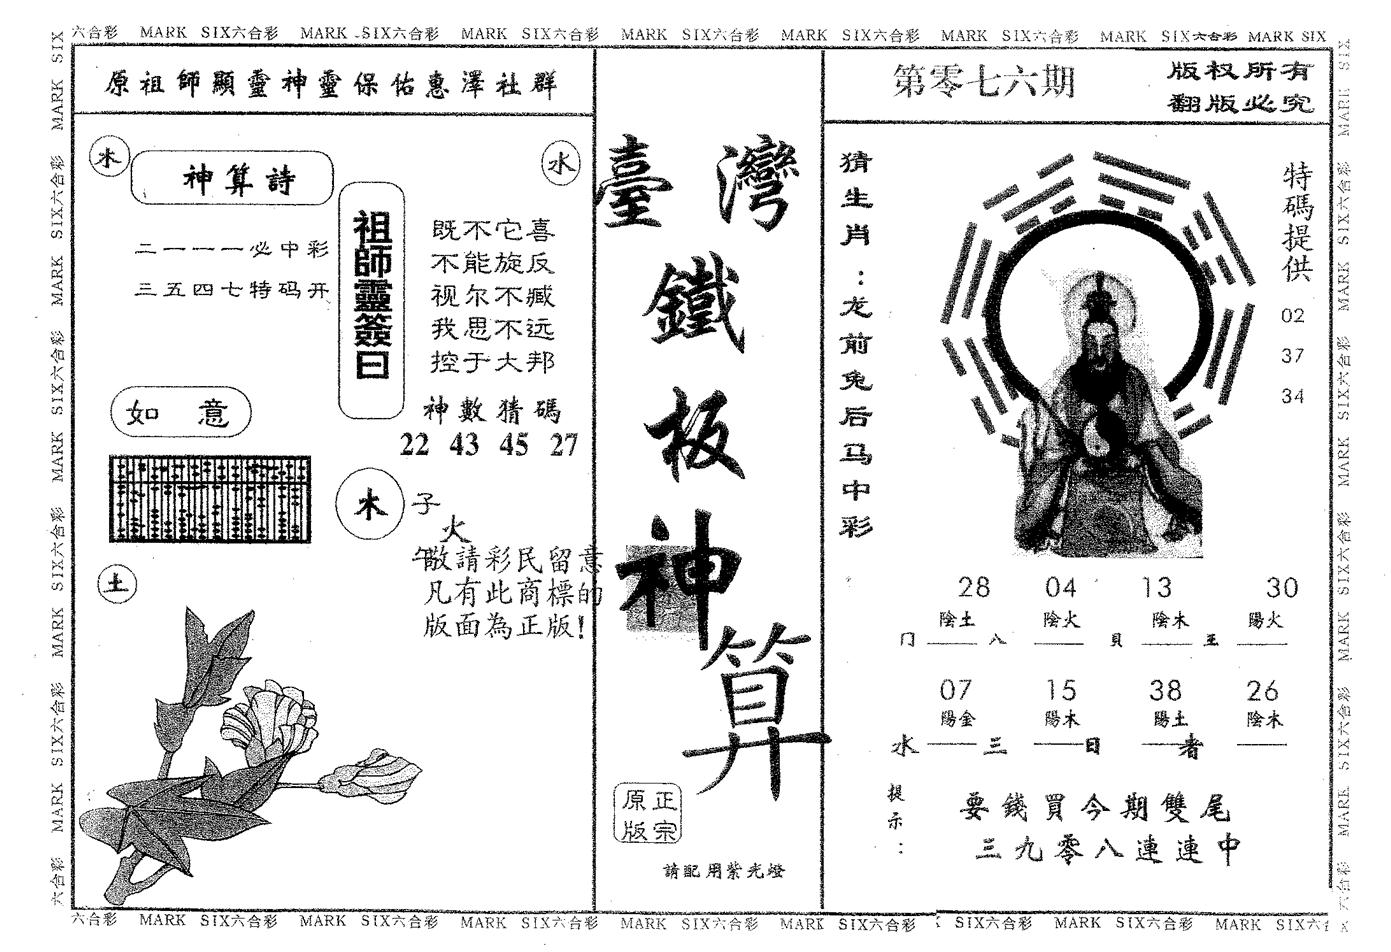 六合彩 MARK SIX六合彩 MARK SIX六合彩 MARK SIX六合彩 MARK SIX六合彩 MARK SIX六合彩 MARK SIX六合彩 MARK SIX六合彩 MARK SIX
原祖師顯靈神靈保佑惠澤社群
木
神算詩
水
二一一一必中彩
三五四七特码开
祖師靈簽曰
既不它喜
不能旋反
视尔不臧
我思不远
控于大邦
神數猜碼
22 43 45 27
如意
木
子
火
午
敬請彩民留意
凡有此商標的
版面為正版!
土
臺灣
鐵
板
神
算
原正
版宗
請配用紫光燈
第零七六期
版权所有
翻版必究
猜生肖:龙前兔后马中彩
特碼提供
02
37
34
28 04 13 30
陰土 陰火 陰木 陽火
门 八 貝 王
07 15 38 26
陽金 陽木 陽土 陰木
水 三 日 者
提示:
要錢買今期雙尾
三九零八連連中
六合彩 MARK SIX六合彩 MARK SIX六合彩 MARK SIX六合彩 MARK SIX六合彩 MARK SIX六合彩 SIX六合彩 MARK SIX六合彩 MARK SIX六